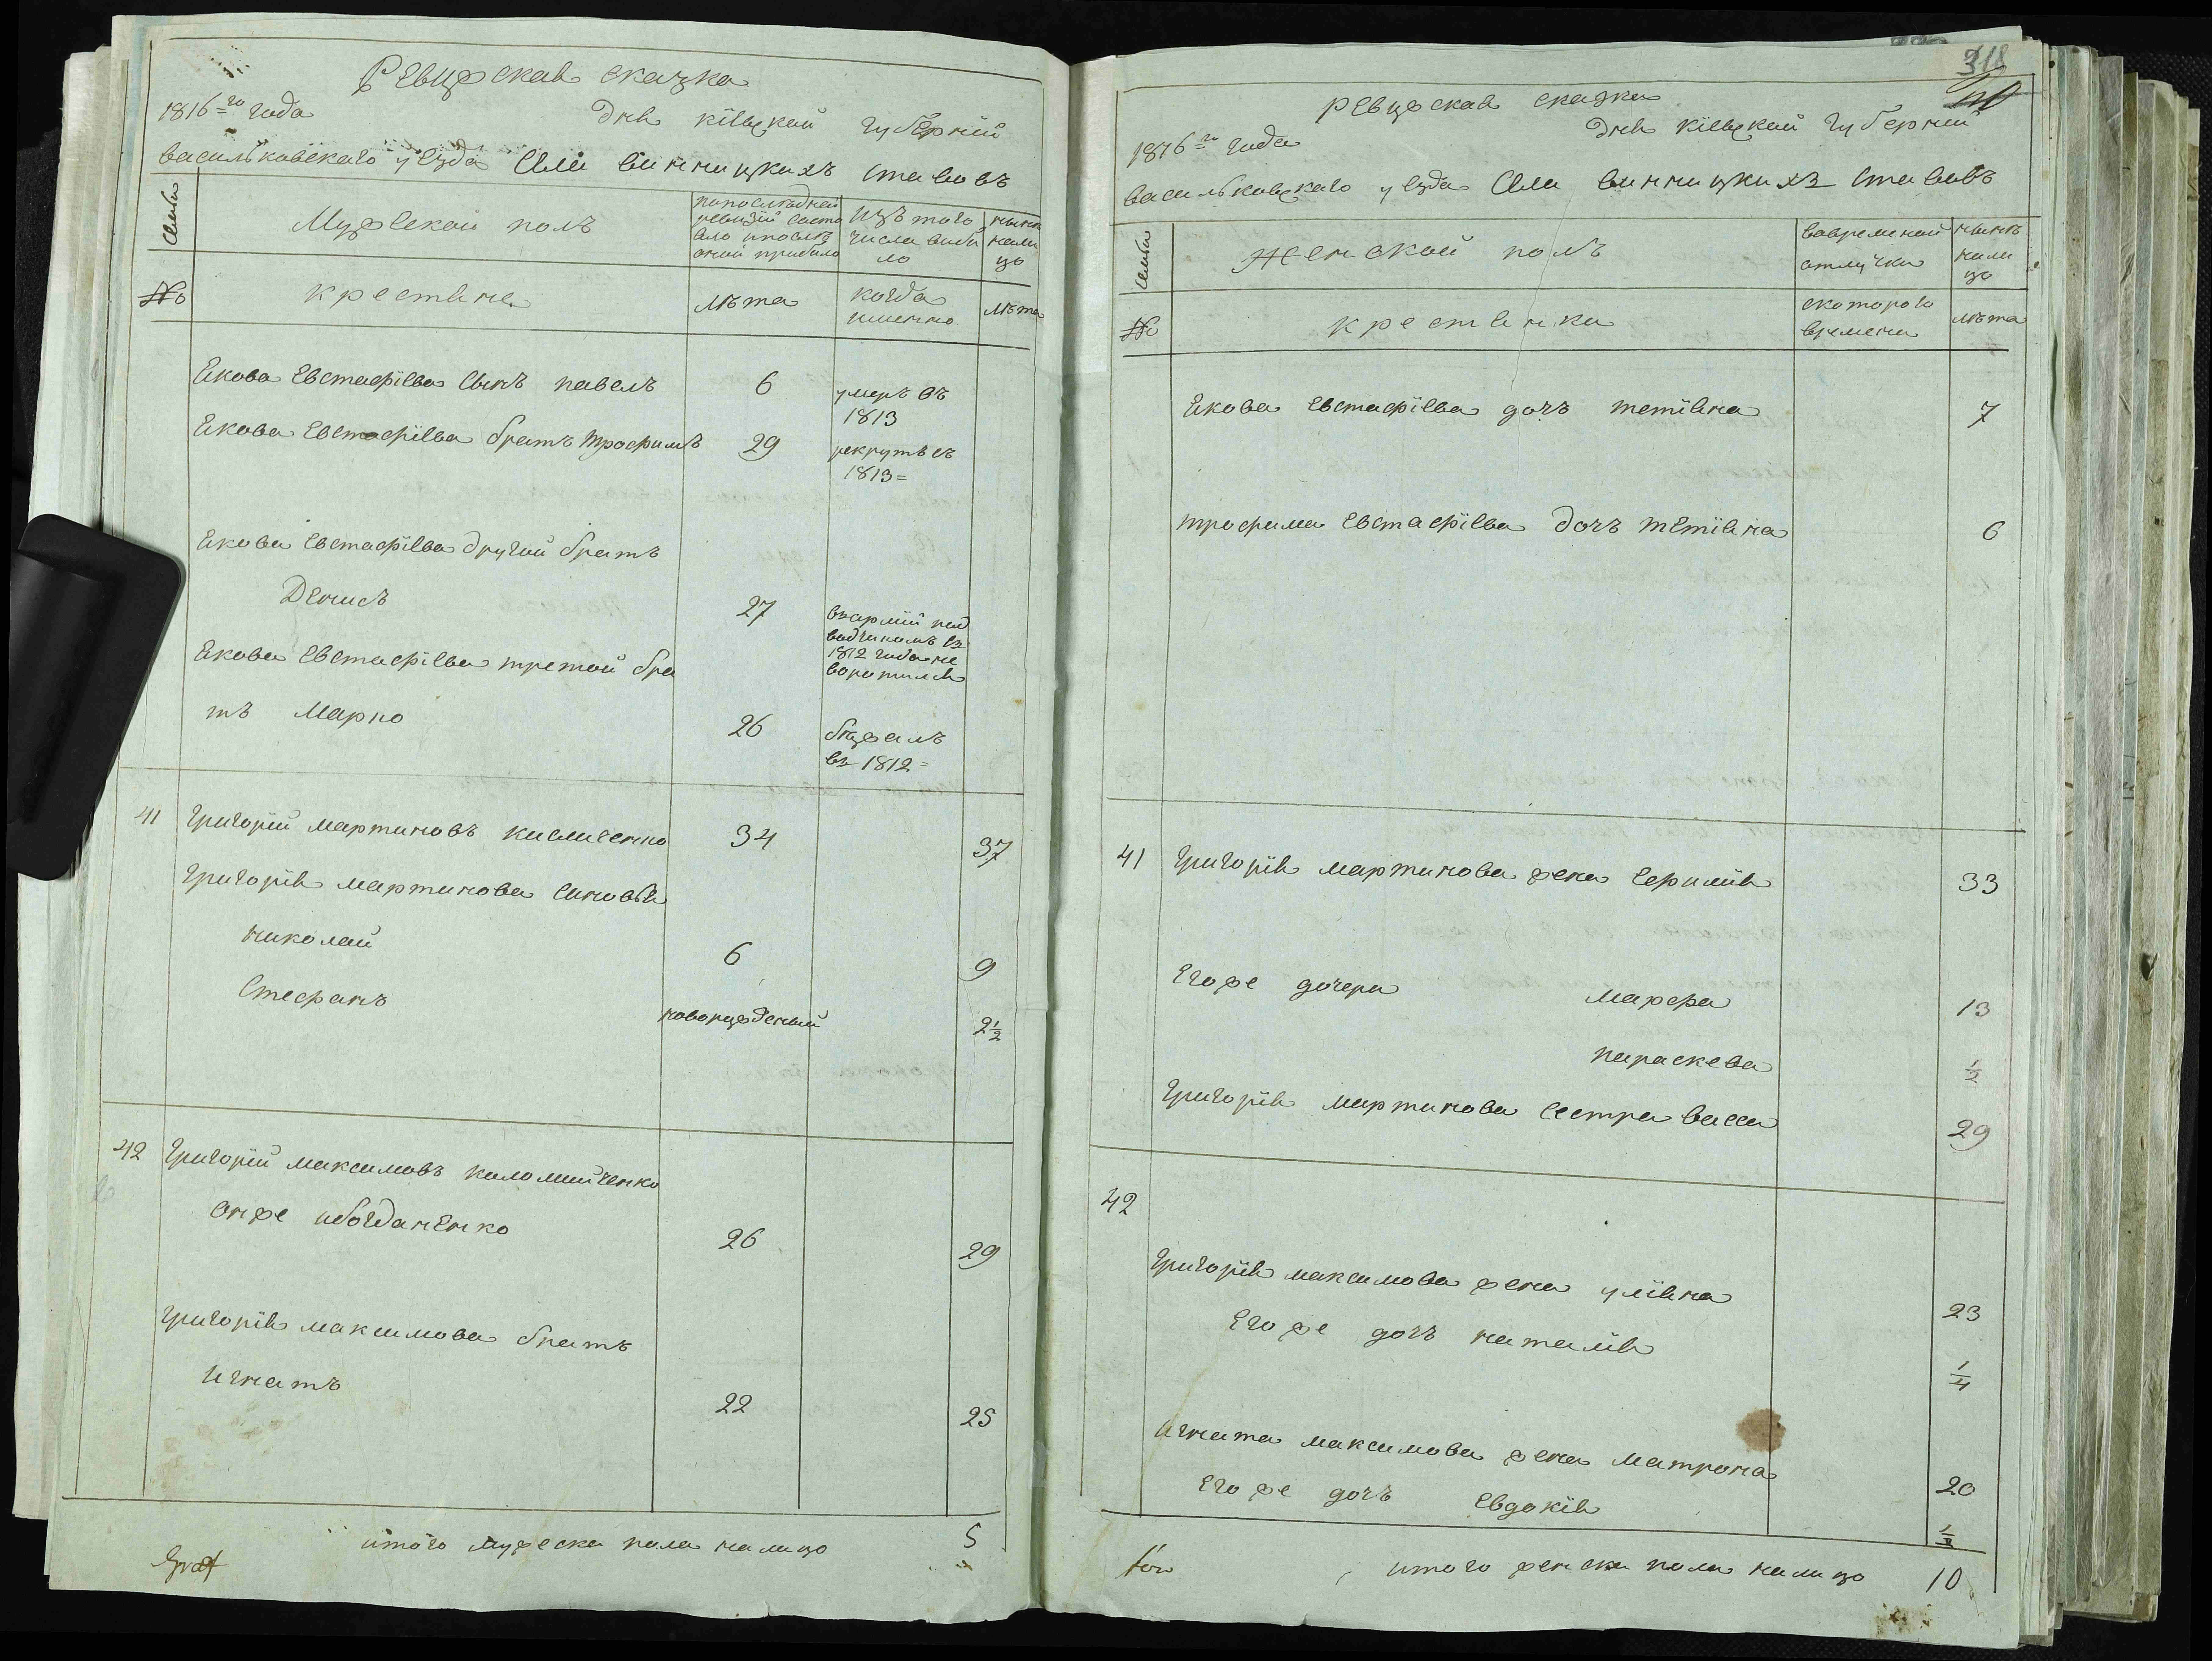 Ревизская сказка
1816=го года Дня кіевской губерніи
васильковскаго уезда Села винницкихъ ставовъ
Семьи
Мужескои полъ
попоследней ревизіи состояло ипосле оной прибыло
изъ того числа выбыло
ныне налицо
№
крестяне
лѣта
когда именно
лѣта
Якова Евстафіева сынъ павелъ 6 умеръ въ 1813
Якова Евстафіева братъ трофимъ 29 рекрутъ съ 1813=
Якова Евстафіева другои братъ
Денисъ 27 въарміи подводчикомъ съ 1812 года не воротился
Якова Евстафіева третои бра
тъ Марко 26 бежалъ въ 1812=
41 Григоріи мартиновъ кисличенко 34 37
Григорія мартинова синовья
николаи 6 9
Стефанъ новорожденыи 2 1/2
42 Григоріи максимовъ коломииченко
онже ибогданенко 26 29
Григорія максимова братъ
игнатъ 22 25
итого мужеска пола налицо 5
Graf
318
ревизская сказка
1816=го года Дня кіевской губерніи
васильковскаго уезда Села винницкихъ ставовъ
Семьи
Женскои полъ
вовременой отлучки
ныне налицо
№
крестянки
скоторого времени
лѣта
Якова Евстафіева дочъ тетіяна 7
трофима Евстафіева дочъ тетіяна 6
41 Григорія мартинова жена 33
Егоже дочери марфа 13
параскева 1/2
Григорія мартинова сестра васса 29
42
Григорія максимова жена уліяна 23
Егоже дочъ наталія 1/4
игната максимова жена матрона 20
Егоже дочъ Евдокія 1/2
итого женска пола налицо 10